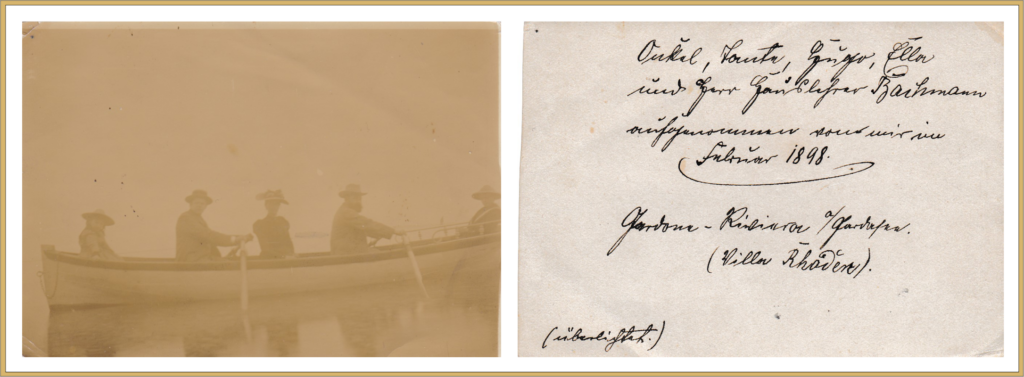 Onkel, Tante, Hugo, Ella
und Herr Hauslehrer Bachmann
aufgenommen von mir im
Februar 1898.
Gardone-Riviera a/Gardasee.
(Villa Rhoden).
(überlichtet.)